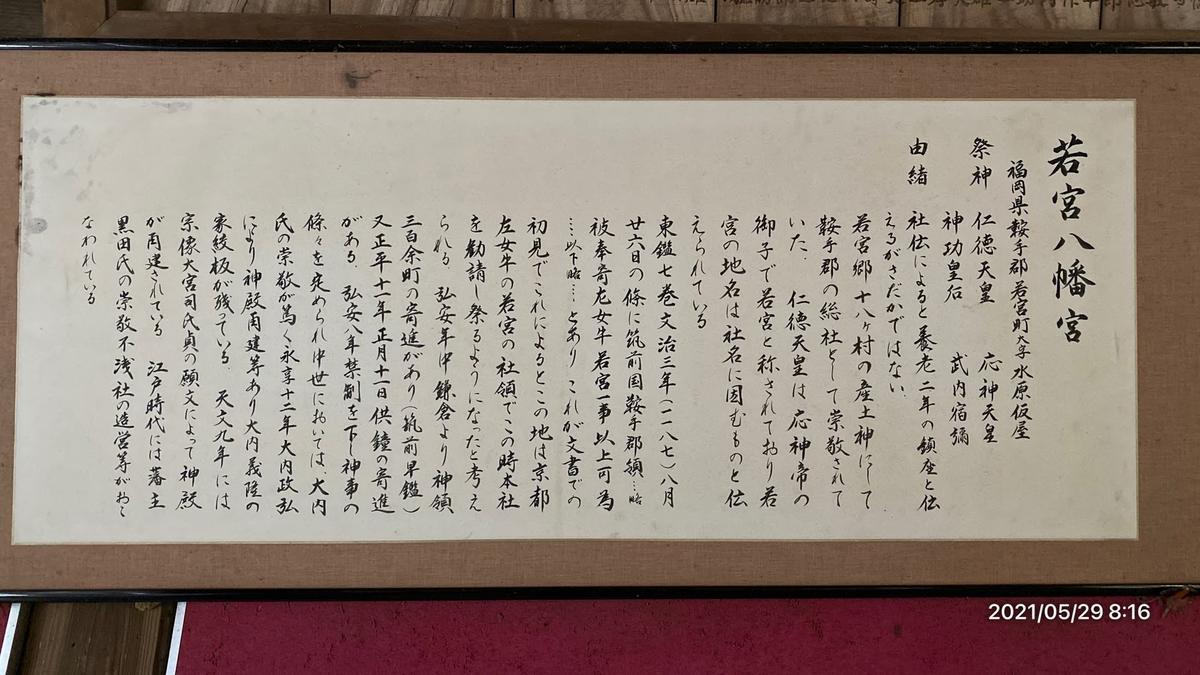 若宮八幡宮
福岡県鞍手郡若宮町大字水原仮屋
祭神 仁徳天皇 応神天皇
神功皇后 武内宿彌
由緒 社伝によると養老二年の鎮座と伝
えるがさだかではない、
若宮郷十八ヶ村の産土神にして
鞍手郡の総社として崇敬されて
いた、 仁徳天皇は応神帝の
御子で若宮と称されており若
宮の地名は社名に因むものと伝
えられている
東鑑七巻文治三年(一一八七)八月
廿六日の條に筑前国鞍手郡領…略
被奉寄左女牛若宮一事以上可為
…以下略…とあり これが文書での
初見でこれによるとこの地は京都
左女牛の若宮の社領でこの時本社
を勧請し祭るようになったと考え
られる 弘安年中鎌倉より神領
三百余町の寄進があり(筑前早鑑)
又正平十一年正月十一日供鐘の寄進
がある、弘安八年禁制を下し神事の
條々を定められ中世においては、大内
氏の崇敬が篤く永享十二年大内政弘
により神殿再建等あり大内義隆の
家綾板が残っている、天文九年には
宗像大宮司氏貞の願文によって神殿
が再建されている 江戸時代には藩主
黒田氏の崇敬不浅社の造営等がおこ
なわれている
2021/05/29 8:16